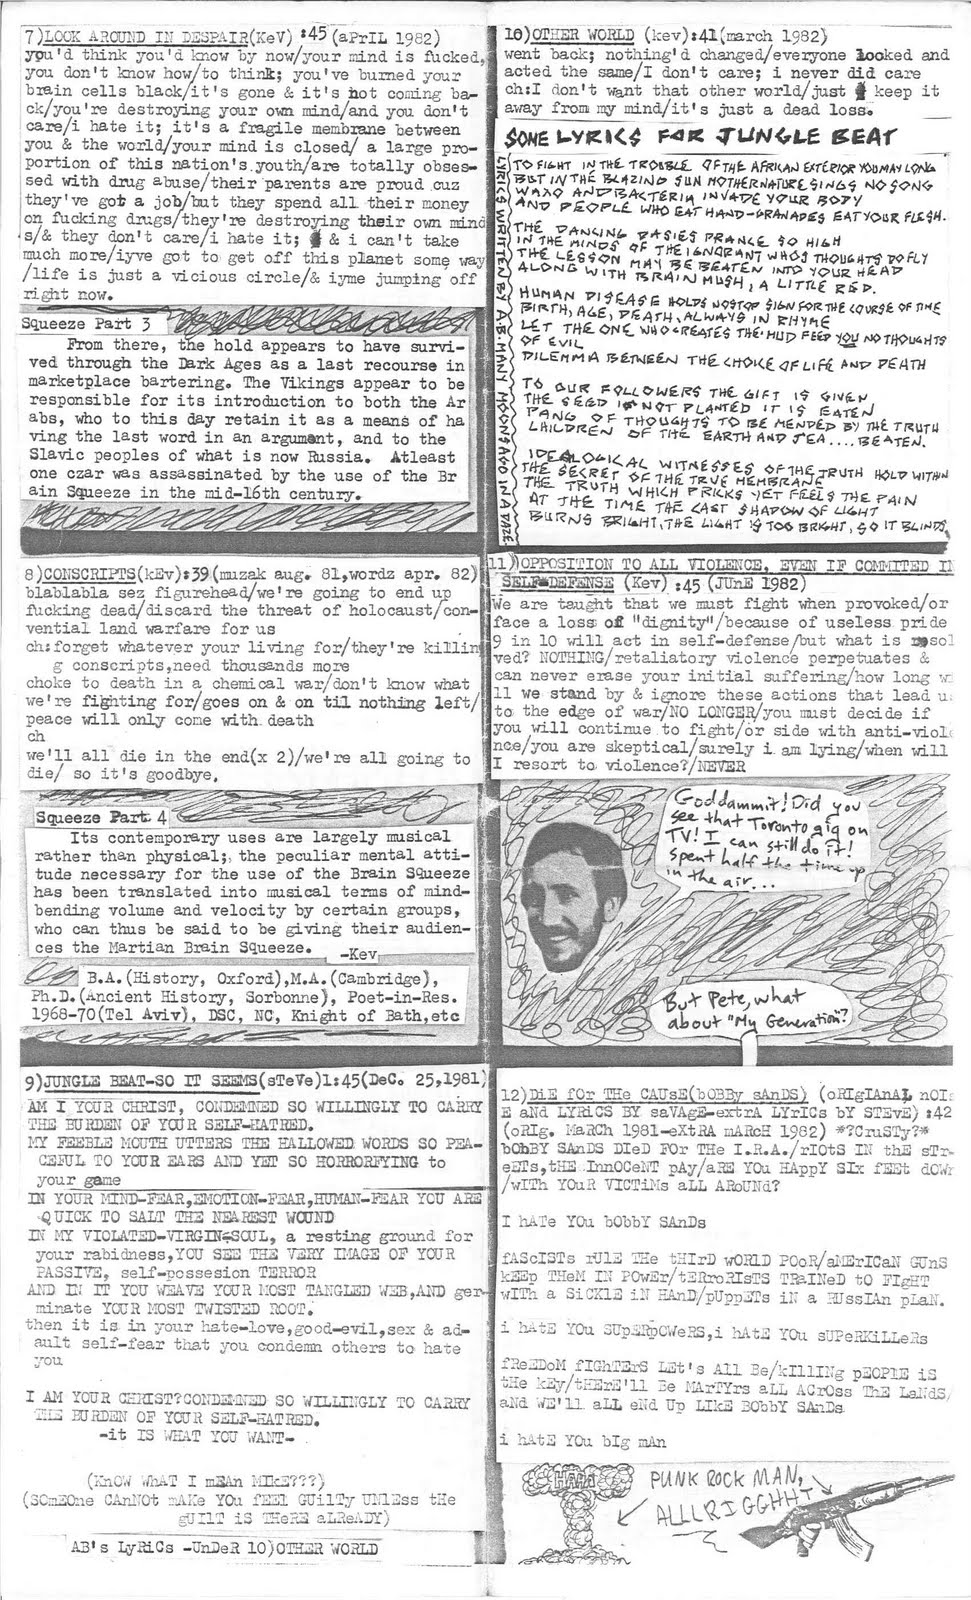 7)LOOK AROUND IN DESPAIR(KeV) :45 (aPrIL 1982)
you'd think you'd know by now/your mind is fucked,
you don't know how/to think; you've burned your
brain cells black/it's gone & it's not coming ba-
ck/you're destroying your own mind/and you don't
care/i hate it; it's a fragile membrane between
you & the world/your mind is closed/ a large pro-
portion of this nation's youth/are totally obses-
sed with drug abuse/their parents are proud cuz
they've got a job/but they spend all their money
on fucking drugs/they're destroying their own mind
s/& they don't care/i hate it; & i can't take
much more/iyve got to get off this planet some way
/life is just a vicious circle/& iyme jumping off
right now.
Squeeze Part 3
From there, the hold appears to have survi-
ved through the Dark Ages as a last recourse in
marketplace bartering. The Vikings appear to be
responsible for its introduction to both the Ar
abs, who to this day retain it as a means of ha
ving the last word in an argument, and to the
Slavic peoples of what is now Russia. Atleast
one czar was assassinated by the use of the Br
ain Squeeze in the mid-16th century.
8)CONSCRIPTS(kEv):39(muzak aug. 81,wordz apr. 82)
blablabla sez figurehead/we're going to end up
fucking dead/discard the threat of holocaust/con-
vential land warfare for us
ch:forget whatever your living for/they're killin
g conscripts,need thousands more
choke to death in a chemical war/don't know what
we're fighting for/goes on & on til nothing left/
peace will only come with death
ch
we'll all die in the end(x 2)/we're all going to
die/ so it's goodbye.
Squeeze Part 4
Its contemporary uses are largely musical
rather than physical; the peculiar mental atti-
tude necessary for the use of the Brain Squeeze
has been translated into musical terms of mind-
bending volume and velocity by certain groups,
who can thus be said to be giving their audien-
ces the Martian Brain Squeeze.
-Kev
B.A.(History, Oxford),M.A.(Cambridge),
Ph.D.(Ancient History, Sorbonne), Poet-in-Res.
1968-70(Tel Aviv), DSC, NC, Knight of Bath,etc
9)JUNGLE BEAT-SO IT SEEMS(sTeVe)1:45(DeC. 25,1981)
AM I YOUR CHRIST, CONDEMNED SO WILLINGLY TO CARRY
THE BURDEN OF YOUR SELF-HATRED.
MY FEEBLE MOUTH UTTERS THE HALLOWED WORDS SO PEA-
CEFUL TO YOUR EARS AND YET SO HORRORFYING to
your game
IN YOUR MIND-FEAR,EMOTION-FEAR,HUMAN-FEAR YOU ARE
QUICK TO SALT THE NEAREST WOUND
IN MY VIOLATED-VIRGIN-SOUL, a resting ground for
your rabidness,YOU SEE THE VERY IMAGE OF YOUR
PASSIVE, self-possesion TERROR
AND IN IT YOU WEAVE YOUR MOST TANGLED WEB,AND ger-
minate YOUR MOST TWISTED ROOT.
then it is in your hate-love,good-evil,sex & ad-
ault self-fear that you condemn others to hate
you
I AM YOUR CHRIST?CONDEMNED SO WILLINGLY TO CARRY
THE BURDEN OF YOUR SELF-HATRED.
-it IS WHAT YOU WANT-
(KnOW WhAT I mEAn MIkE???)
(SOmEOne CAnNOt mAKe YOu fEEl GUilTy UNlEss tHe
gUILT iS THeRE aLReADY)
AB's LyRiCs -UnDeR 10)OTHER WORLD
10)OTHER WORLD (kev):41(march 1982)
went back; nothing'd changed/everyone looked and
acted the same/I don't care; i never did care
ch:I don't want that other world/just keep it
away from my mind/it's just a dead loss.
SOME LYRICS FOR JUNGLE BEAT
LYRICS WRITTEN BY A.B. MANY MOONS AGO IN A DAZE.
TO FIGHT IN THE TROUBLE OF THE AFRICAN EXTERIOR YOU MAY LONG
BUT IN THE BLAZING SUN MOTHERNATURE SINGS NO SONG
AND BACTERIA INVADE YOUR BODY
AND PEOPLE WHO EAT HAND-GRANADES EAT YOUR FLESH.
THE DANCING DASIES PRANCE SO HIGH
IN THE MINDS OF THE IGNORANT WHOS THOUGHTS DO FLY
THE LESSON MAY BE BEATEN INTO YOUR HEAD
ALONG WITH BRAIN MUSH, A LITTLE RED.
HUMAN DISEASE HOLDS NO STOP SIGN FOR THE COURSE OF TIME
BIRTH, AGE, DEATH, ALWAYS IN RHYME
LET THE ONE WHO CREATES THE MUD FEED YOU NO THOUGHTS
OF EVIL
DILEMMA BETWEEN THE CHOICE OF LIFE AND DEATH
TO OUR FOLLOWERS THE GIFT IS GIVEN
THE SEED IS NOT PLANTED IT IS EATEN
PANG OF THOUGHTS TO BE MENDED BY THE TRUTH
CHILDREN OF THE EARTH AND SEA....BEATEN.
IDEALOGICAL WITNESSES OF THE TRUTH HOLD WITHIN
THE SECRET OF THE TRUE MEMBRANE
THE TRUTH WHICH PRICKS YET FEELS THE PAIN
AT THE TIME THE CAST SHADOW OF LIGHT
BURNS BRIGHT, THE LIGHT IS TOO BRIGHT, SO IT BLINDS.
11)OPPOSITION TO ALL VIOLENCE, EVEN IF COMMITED IN
SELF-DEFENSE (Kev) :45 (JUnE 1982)
We are taught that we must fight when provoked/or
face a loss of "dignity"/because of useless pride
9 in 10 will act in self-defense/but what is resol
ved? NOTHING/retaliatory violence perpetuates &
can never erase your initial suffering/how long wi
ll we stand by & ignore these actions that lead us
to the edge of war/NO LONGER/you must decide if
you will continue to fight/or side with anti-viole
nce/you are skeptical/surely i am lying/when will
I resort to violence?/NEVER
Goddammit! Did you
see that Toronto gig on
TV! I can still do it!
Spent half the time up
in the air...
But Pete, what
about "My Generation"?
12)DiE FOr THe CAUsE(bOBBy sANDS) (oRIgIAnAL nOIs
E aNd LYRiCS BY saVAgE-extrA LYrICs bY STEvE) :42
(oRIg. MaRCh 1981-eXtRA mARcH 1982) *?CruSTy?*
bObBY SAnDS DIeD FOr THe I.R.A./rIOtS IN thE sTr-
eETs,tHE InnOCeNT pAy/aRE YOu HAppY SIx fEEt dOWn
/wITh YOuR VICTiMs aLL ARoUNd?
I hATe YOu bObbY SAnDs
fAScISTs rULE THe tHIrD wORLD POoR/aMErICaN GUnS
kEEp THeM IN POwEr/tERroRIsTS TRaINeD tO FIgHT
wITh a SiCKlE iN HAnD/pUppETs iN a RUssIAn pLaN.
i hAtE YOU SUpERpOWeRS,i hAtE YOu sUPeRKiLLeRs
fReEDoM fIGhTErS LEt's All Be/kIllINg pEOPlE iS
tHe kEy/tHERe'll Be MArTYrs aLL ACrOss ThE LaNdS/
aNd WE'll aLL eNd Up LIkE BObbY SAnDs
i hAtE YOu bIg mAn
HAHA
PUNK ROCK MAN,
ALLLRIGGHHT